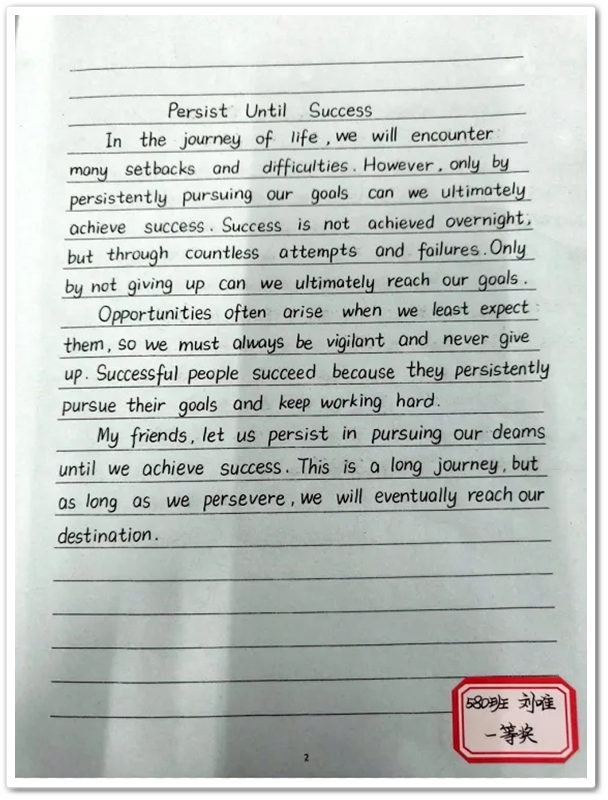 Persist Until Success
In the journey of life, we will encounter
many setbacks and difficulties. However, only by
persistently pursuing our goals can we ultimately
achieve success. Success is not achieved overnight,
but through countless attempts and failures. Only
by not giving up can we ultimately reach our goals.
Opportunities often arise when we least expect
them, so we must always be vigilant and never give
up. Successful people succeed because they persistently
pursue their goals and keep working hard.
My friends, let us persist in pursuing our deams
until we achieve success. This is a long journey, but
as long as we persevere, we will eventually reach our
destination.
580班 刘唯
一等奖
2